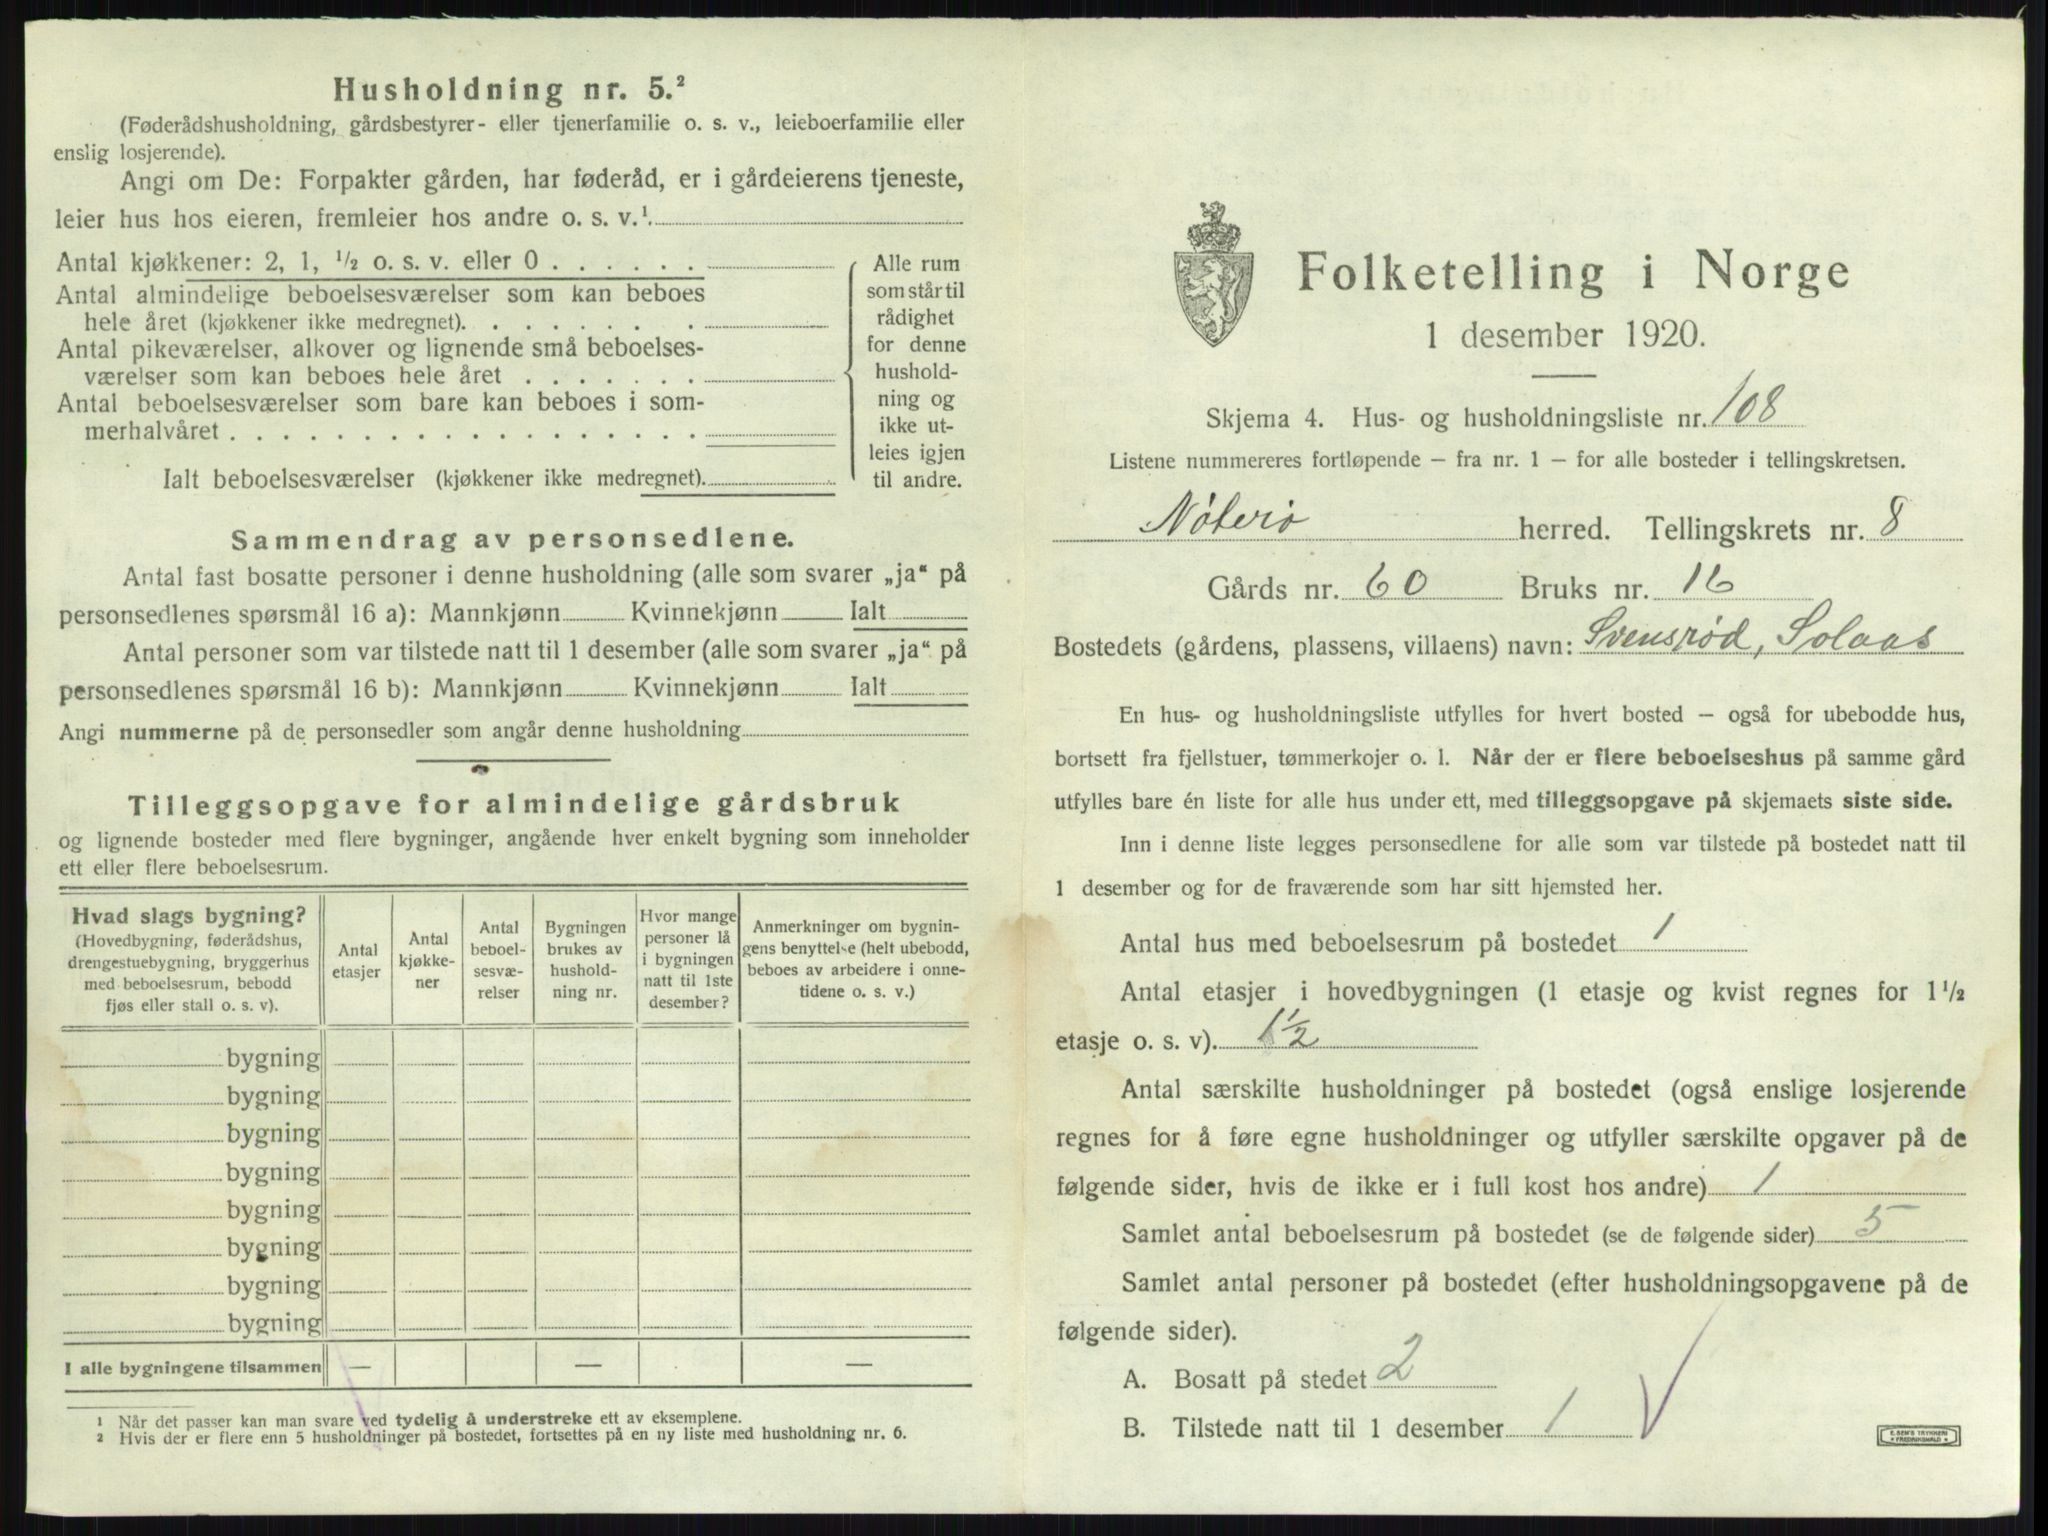 Husholdning nr. 5.²
(Føderådshusholdning, gårdsbestyrer- eller tjenerfamilie o. s. v., leieboerfamilie eller
enslig losjerende).
Angi om De: Forpakter gården, har føderåd, er i gårdeierens tjeneste,
leier hus hos eieren, fremleier hos andre o. s. v.¹
Antal kjøkkener: 2, 1, ½ o. s. v. eller 0 . . . . . .
Antal almindelige beboelsesværelser som kan beboes
hele året (kjøkkener ikke medregnet). . . . . . . .
Antal pikeværelser, alkover og lignende små beboelses-
værelser som kan beboes hele året . . . . . . .
Antal beboelsesværelser som bare kan beboes i som-
merhalvåret . . . . . . . . . . . . . . . . . .
Ialt beboelsesværelser (kjøkkener ikke medregnet).
Alle rum
som står til
rådighet
for denne
hushold-
ning og
ikke ut-
leies igjen
til andre.
Sammendrag av personsedlene.
Antal fast bosatte personer i denne husholdning (alle som svarer „ja“ på
personsedlenes spørsmål 16 a): Mannkjønn Kvinnekjønn Ialt
Antal personer som var tilstede natt til 1 desember (alle som svarer „ja“ på
personsedlenes spørsmål 16 b): Mannkjønn Kvinnekjønn Ialt
Angi nummerne på de personsedler som angår denne husholdning
Tilleggsopgave for almindelige gårdsbruk
og lignende bosteder med flere bygninger, angående hver enkelt bygning som inneholder
ett eller flere beboelsesrum.
Hvad slags bygning?
(Hovedbygning, føderådshus,
drengestuebygning, bryggerhus
med beboelsesrum, bebodd
fjøs eller stall o. s. v).
Antal
etasjer
Antal
kjøkke-
ner
Antal
beboel-
sesvæ-
relser
Bygningen
brukes av
hushold-
ning nr.
Hvor mange
personer lå
i bygningen
natt til 1ste
desember?
Anmerkninger om bygnin-
gens benyttelse (helt ubebodd,
beboes av arbeidere i onne-
tidene o. s. v.)
bygning
bygning
bygning
bygning
bygning
bygning
bygning
bygning
I alle bygningene tilsammen — — —
¹ Når det passer kan man svare ved tydelig å understreke ett av eksemplene.
² Hvis der er flere enn 5 husholdninger på bostedet, fortsettes på en ny liste med husholdning nr. 6.
Folketelling i Norge
1 desember 1920.
Skjema 4. Hus- og husholdningsliste nr. 108
Listene nummereres fortløpende – fra nr. 1 – for alle bosteder i tellingskretsen.
Nøterø herred. Tellingskrets nr. 8
Gårds nr. 60 Bruks nr. 16
Bostedets (gårdens, plassens, villaens) navn: Svensrød, Solaas
En hus- og husholdningsliste utfylles for hvert bosted – også for ubebodde hus,
bortsett fra fjellstuer, tømmerkojer o. l. Når der er flere beboelseshus på samme gård
utfylles bare én liste for alle hus under ett, med tilleggsopgave på skjemaets siste side.
Inn i denne liste legges personsedlene for alle som var tilstede på bostedet natt til
1 desember og for de fraværende som har sitt hjemsted her.
Antal hus med beboelsesrum på bostedet 1
Antal etasjer i hovedbygningen (1 etasje og kvist regnes for 1½
etasje o. s. v). 1½
Antal særskilte husholdninger på bostedet (også enslige losjerende
regnes for å føre egne husholdninger og utfyller særskilte opgaver på de
følgende sider, hvis de ikke er i full kost hos andre) 1
Samlet antal beboelsesrum på bostedet (se de følgende sider) 5
Samlet antal personer på bostedet (efter husholdningsopgavene på de
følgende sider).
A. Bosatt på stedet 2
B. Tilstede natt til 1 desember 1
FREDRIKSHALD